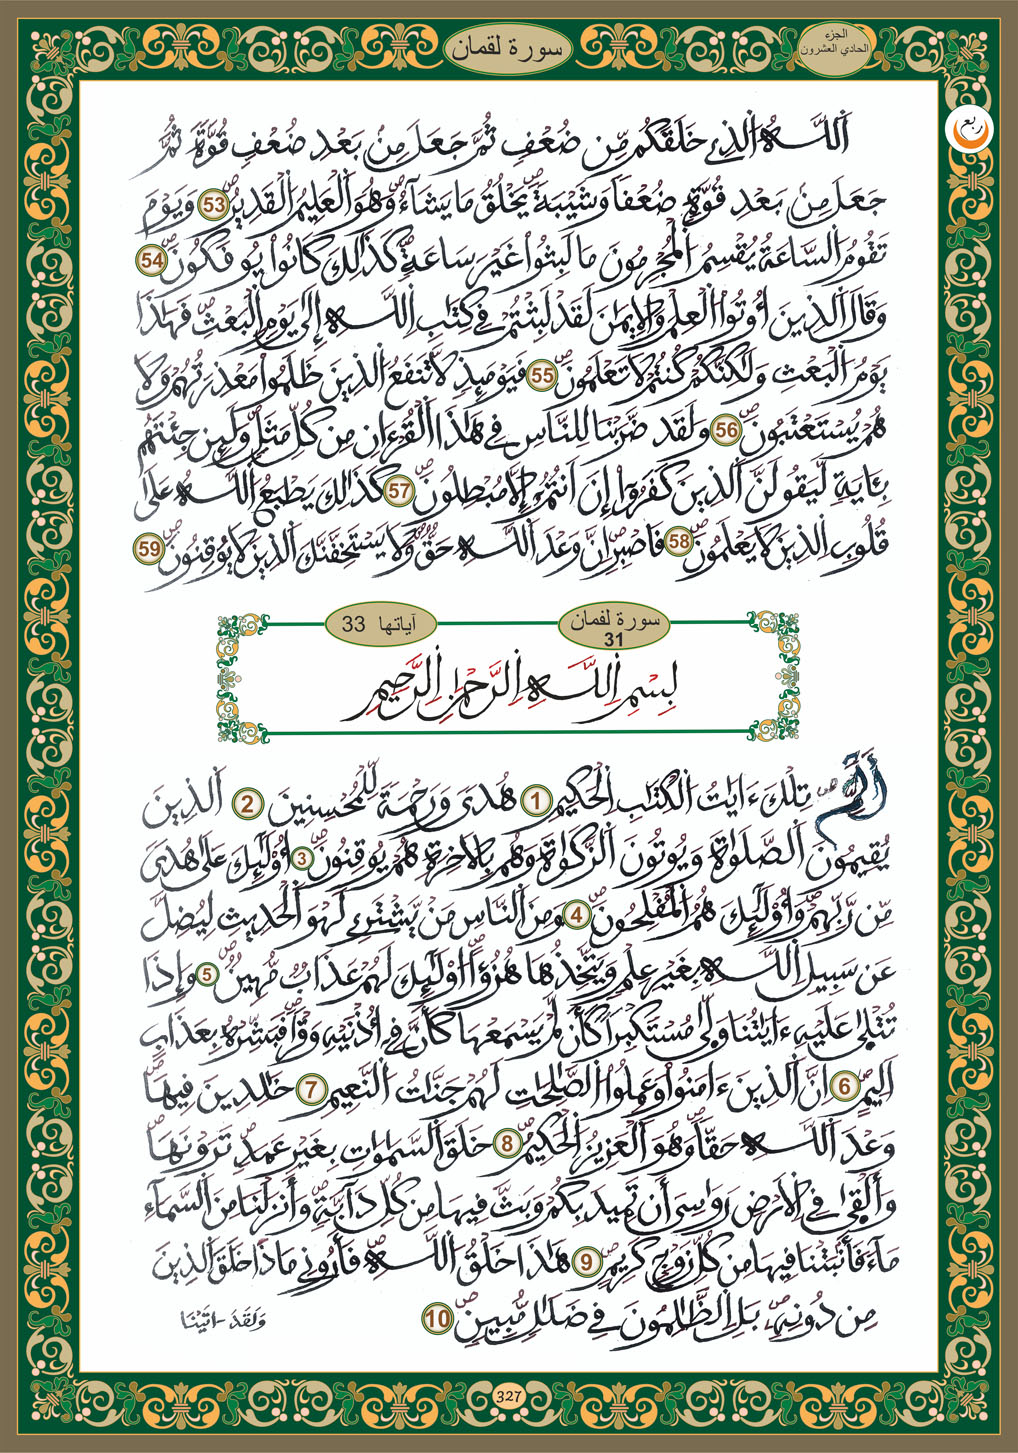 سورة لقمان
الجزء
الحادي العشرون
ربع
اَ۬للَّهُ اُ۬لذِے خَلَقَكُم مِّن ضُعْفٖ ثُمَّ جَعَلَ مِنۢ بَعْدِ ضُعْفٖ قُوَّةٗ ثُمَّ
جَعَلَ مِنۢ بَعْدِ قُوَّةٖ ضُعْفاٗ وَشَيْبَةٗ يَخْلُقُ مَا يَشَآءُ وَهُوَ اَ۬لْعَلِيمُ اُ۬لْقَدِيرُ 53 وَيَوْمَ
تَقُومُ اُ۬لسَّاعَةُ يُقْسِمُ اُ۬لْمُجْرِمُونَ مَا لَبِثُواْ غَيْرَ سَاعَةٖ كَذَٰلِكَ كَانُواْ يُوفَكُونَ 54
وَقَالَ اَ۬لذِينَ أُوتُواْ اُ۬لْعِلْمَ وَالِايمَٰنَ لَقَدْ لَبِثْتُمْ فِے كِتَٰبِ اِ۬للَّهِ إِلَىٰ يَوْمِ اِ۬لْبَعْثِ فَهَٰذَا
يَوْمُ اُ۬لْبَعْثِ وَلَٰكِنَّكُمْ كُنتُمْ لَا تَعْلَمُونَ 55 فَيَوْمَئِذٖ لَّا تَنفَعُ اُ۬لذِينَ ظَلَمُواْ مَعْذِرَتُهُمْ وَلَا
هُمْ يُسْتَعْتَبُونَ 56 وَلَقَدْ ضَرَبْنَا لِلنَّاسِ فِے هَٰذَا اَ۬لْقُرْءَانِ مِن كُلِّ مَثَلٖ وَلَئِن جِئْتَهُم
بِـَٔايَةٖ لَّيَقُولَنَّ اَ۬لذِينَ كَفَرُواْ إِنَ اَنتُمُۥ إِلَّا مُبْطِلُونَ 57 كَذَٰلِكَ يَطْبَعُ اُ۬للَّهُ عَلَىٰ
قُلُوبِ اِ۬لذِينَ لَا يَعْلَمُونَ 58 فَاصْبِرِ اِنَّ وَعْدَ اَ۬للَّهِ حَقّٞ وَلَا يَسْتَخِفَّنَّكَ اَ۬لذِينَ لَا يُوقِنُونَ 59
سورة لقمان
31
آياتها 33
بِسْمِ اِ۬للَّهِ اِ۬لرَّحْمَٰنِ اِ۬لرَّحِيمِ
أَلَٓمِّٓ تِلْكَ ءَايَٰتُ اُ۬لْكِتَٰبِ اِ۬لْحَكِيمِ 1 هُدىٗ وَرَحْمَةٗ لِّلْمُحْسِنِينَ 2 اَ۬لذِينَ
يُقِيمُونَ اَ۬لصَّلَوٰةَ وَيُوتُونَ اَ۬لزَّكَوٰةَ وَهُم بِالَاخِرَةِ هُمْ يُوقِنُونَ 3 أُوْلَٰٓئِكَ عَلَىٰ هُدىٗ
مِّن رَّبِّهِمْ وَأُوْلَٰٓئِكَ هُمُ اُ۬لْمُفْلِحُونَ 4 وَمِنَ اَ۬لنَّاسِ مَنْ يَّشْتَرِے لَهْوَ اَ۬لْحَدِيثِ لِيُضِلَّ
عَن سَبِيلِ اِ۬للَّهِ بِغَيْرِ عِلْمٖ وَيَتَّخِذُهَا هُزُؤاً اُوْلَٰٓئِكَ لَهُمْ عَذَابٞ مُّهِينٞ 5 وَإِذَا
تُتْلَىٰ عَلَيْهِ ءَايَٰتُنَا وَلَّىٰ مُسْتَكْبِراٗ كَأَن لَّمْ يَسْمَعْهَا كَأَنَّ فِےٓ أُذْنَيْهِ وَقْراٗ فَبَشِّرْهُ بِعَذَابٍ
اَلِيمٍ 6 اِنَّ اَ۬لذِينَ ءَامَنُواْ وَعَمِلُواْ اُ۬لصَّٰلِحَٰتِ لَهُمْ جَنَّٰتُ اُ۬لنَّعِيمِ 7 خَٰلِدِينَ فِيهَا
وَعْدَ اَ۬للَّهِ حَقّاٗ وَهُوَ اَ۬لْعَزِيزُ اُ۬لْحَكِيمُ 8 خَلَقَ اَ۬لسَّمَٰوَٰتِ بِغَيْرِ عَمَدٖ تَرَوْنَهَا
وَأَلْقَىٰ فِے اِ۬لَارْضِ رَوَٰسِيَ أَن تَمِيدَ بِكُمْ وَبَثَّ فِيهَا مِن كُلِّ دَآبَّةٖ وَأَنزَلْنَا مِنَ اَ۬لسَّمَآءِ
مَآءٗ فَأَنۢبَتْنَا فِيهَا مِن كُلِّ زَوْجٖ كَرِيمٍ 9 هَٰذَا خَلْقُ اُ۬للَّهِ فَأَرُونِے مَاذَا خَلَقَ اَ۬لذِينَ
مِن دُونِهِۦ بَلِ اِ۬لظَّٰلِمُونَ فِے ضَلَٰلٖ مُّبِينٖ 10
وَلَقَدَ اتَيْنَا
327